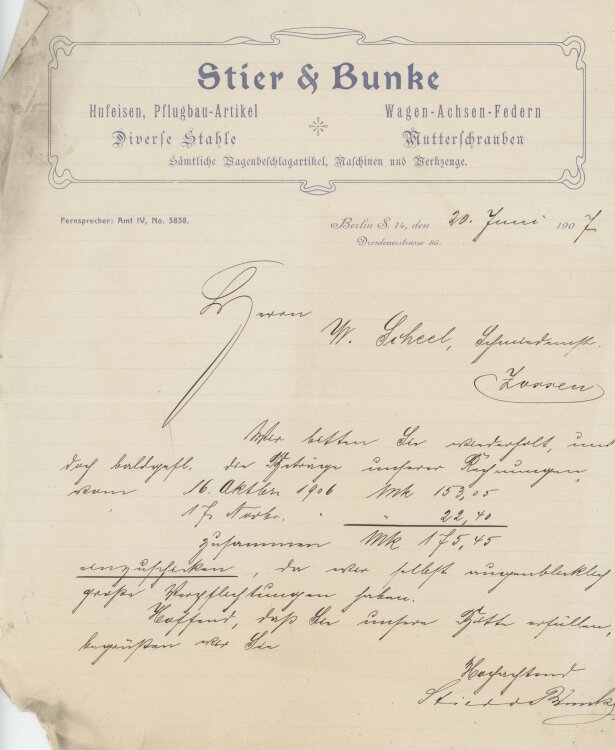 Stier & Bunke
Hufeisen, Pflugbau-Artikel
Wagen-Achsen-Federn
Diverse Stahle
Mutterschrauben
Sämtliche Wagenbeschlagartikel, Maschinen und Werkzeuge.
Fernsprecher: Amt IV, No. 3838.
Berlin S. 14, den 20. Juni 1907
Dresdenerstrasse 86.
Herrn
W. Scheel, Schmiedemstr.
Zossen
Wir bitten Sie wiederholt, uns
doch baldgefl. die Beträge unserer Rechnungen
vom 16. Oktbr. 1906 Mk 153,05
17. Novbr. " " 22,40
zusammen Mk 175,45
einzuschicken, da wir selbst augenblicklich
große Verpflichtungen haben.
Hoffend, daß Sie unsere Bitte erfüllen,
begrüßen wir Sie
Hochachtend
Stier & Bunke